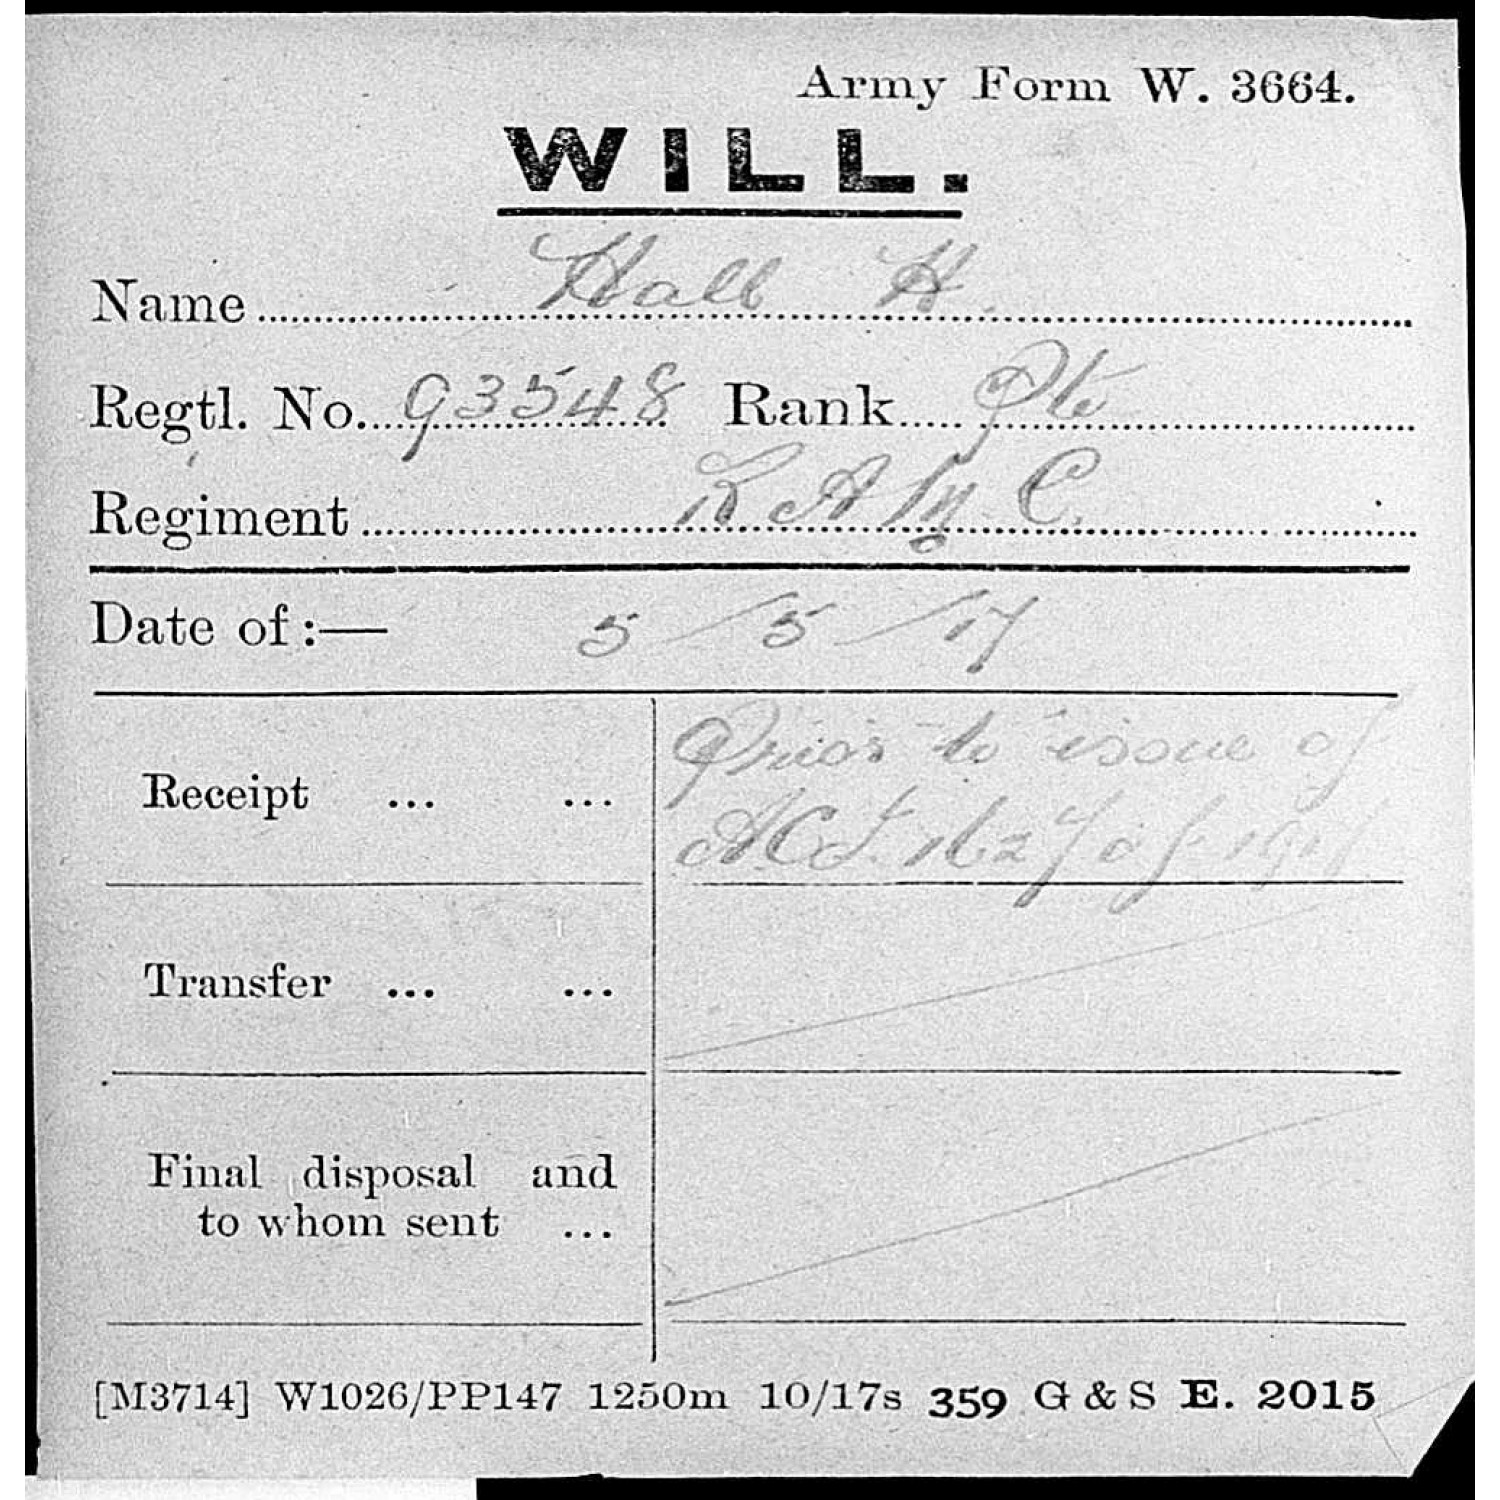 Army Form W. 3664.
WILL.
Name Hall H.
Regtl. No. 93548 Rank Pte
Regiment R A M C.
Date of :— 5/5/17
Prior to issue of
Receipt ... ...
A.C.I. 1627 of 1917
Transfer ... ...
Final disposal and
to whom sent ...
[M3714] W1026/PP147 1250m 10/17s 359 G & S E. 2015